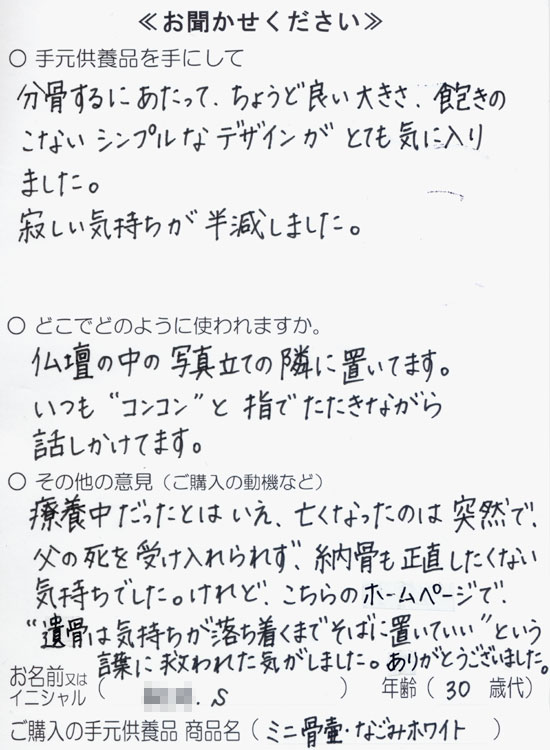 ≪お聞かせください≫
○ 手元供養品を手にして
分骨するにあたって、ちょうど良い大きさ、飽きの
こない シンプルな デザインが とても気に入り
ました。
寂しい気持ちが 半減しました。
○ どこでどのように使われますか。
仏壇の中の写真立ての隣に置いてます。
いつも “コンコン”と 指でたたきながら
話しかけてます。
○ その他の意見(ご購入の動機など)
療養中だったとはいえ、亡くなったのは 突然で、
父の死を受け入れられず、納骨も正直したくない
気持ちでした。けれど、こちらのホームページで、
“遺骨は気持ちが落ち着くまでそばに置いていい”という
言葉に救われた気がしました。ありがとうございました。
お名前又は
イニシャル ( . S ) 年齢 ( 30 歳代)
ご購入の手元供養品 商品名 ( ミニ骨壷・なごみホワイト )